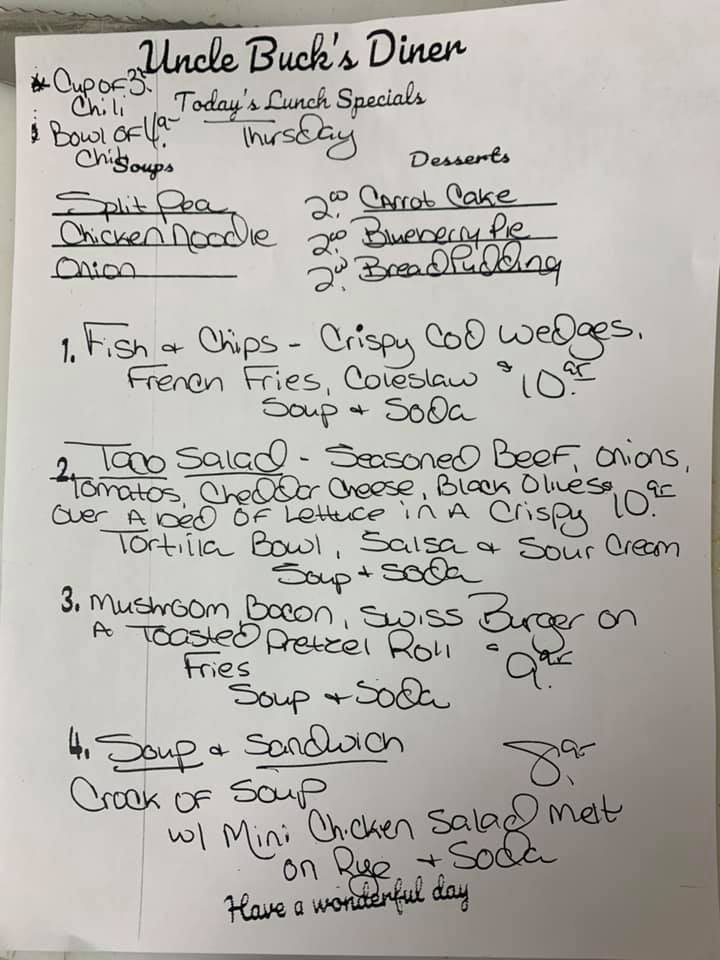 Uncle Buck's Diner
* Cup of 3.
Chili
Today's Lunch Specials
Bowl of 4.
Thursday
Soups
Desserts
Split Pea
2.00 Carrot Cake
Chicken Noodle
2.00 Blueberry Pie
Onion
2.00 Bread Pudding
1. Fish & Chips - Crispy Cod wedges,
French Fries, Coleslaw $10.95
Soup + Soda
2. Taco Salad - Seasoned Beef, onions,
Tomatos, Cheddar Cheese, Black Olives
over A bed of Lettuce in A Crispy $10.95
Tortilla Bowl, Salsa & Sour Cream
Soup + Soda
3. Mushroom, Bacon, Swiss Burger on
A Toasted Pretzel Roll
Fries 9.95
Soup + Soda
4. Soup & Sandwich 8.95
Crock of Soup
w/ Mini Chicken Salad melt
on Rye + Soda
Have a wonderful day